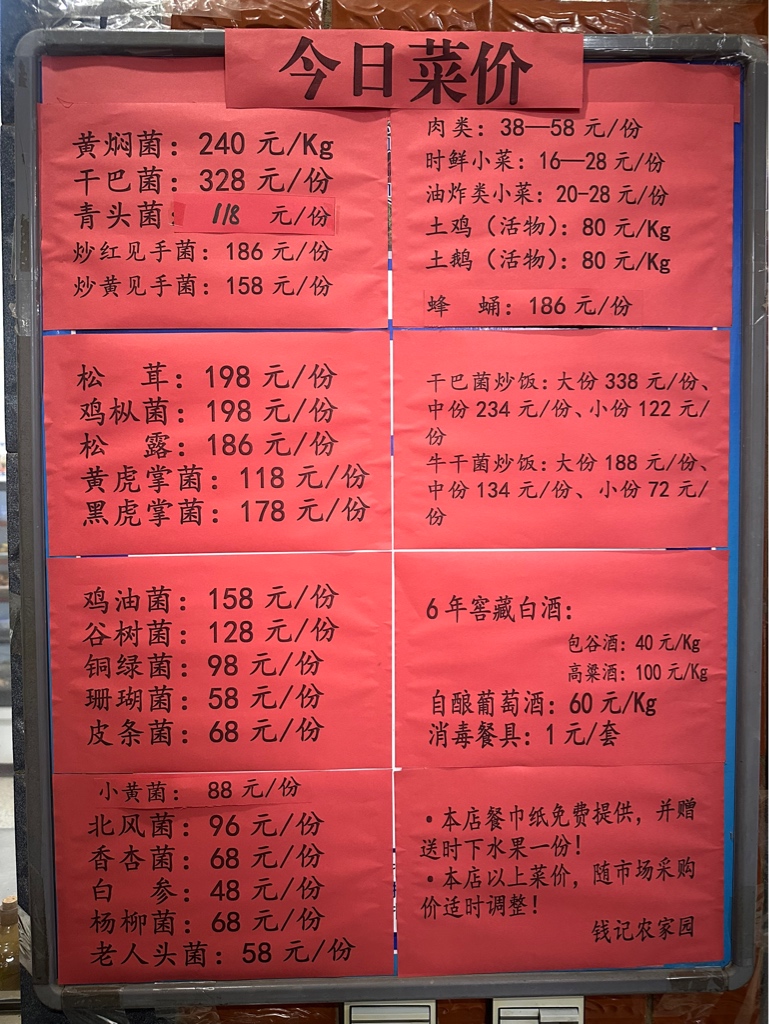 今日菜价
黄焖菌：240 元/Kg
干巴菌：328 元/份
青头菌：118 元/份
炒红见手菌：186 元/份
炒黄见手菌：158 元/份
松 茸：198 元/份
鸡枞菌：198 元/份
松 露：186 元/份
黄虎掌菌：118 元/份
黑虎掌菌：178 元/份
鸡油菌：158 元/份
谷树菌：128 元/份
铜绿菌：98 元/份
珊瑚菌：58 元/份
皮条菌：68 元/份
小黄菌：88 元/份
北风菌：96 元/份
香杏菌：68 元/份
白 参：48 元/份
杨柳菌：68 元/份
老人头菌：58 元/份
肉类：38—58 元/份
时鲜小菜：16—28 元/份
油炸类小菜：20-28 元/份
土鸡（活物）：80 元/Kg
土鹅（活物）：80 元/Kg
蜂 蛹：186 元/份
干巴菌炒饭：大份 338 元/份、
中份 234 元/份、小份 122 元/
份
牛干菌炒饭：大份 188 元/份、
中份 134 元/份、小份 72 元/
份
6 年窖藏白酒：
包谷酒：40 元/Kg
高粱酒：100 元/Kg
自酿葡萄酒：60 元/Kg
消毒餐具：1 元/套
·本店餐巾纸免费提供，并赠
送时下水果一份！
·本店以上菜价，随市场采购
价适时调整！
钱记农家园